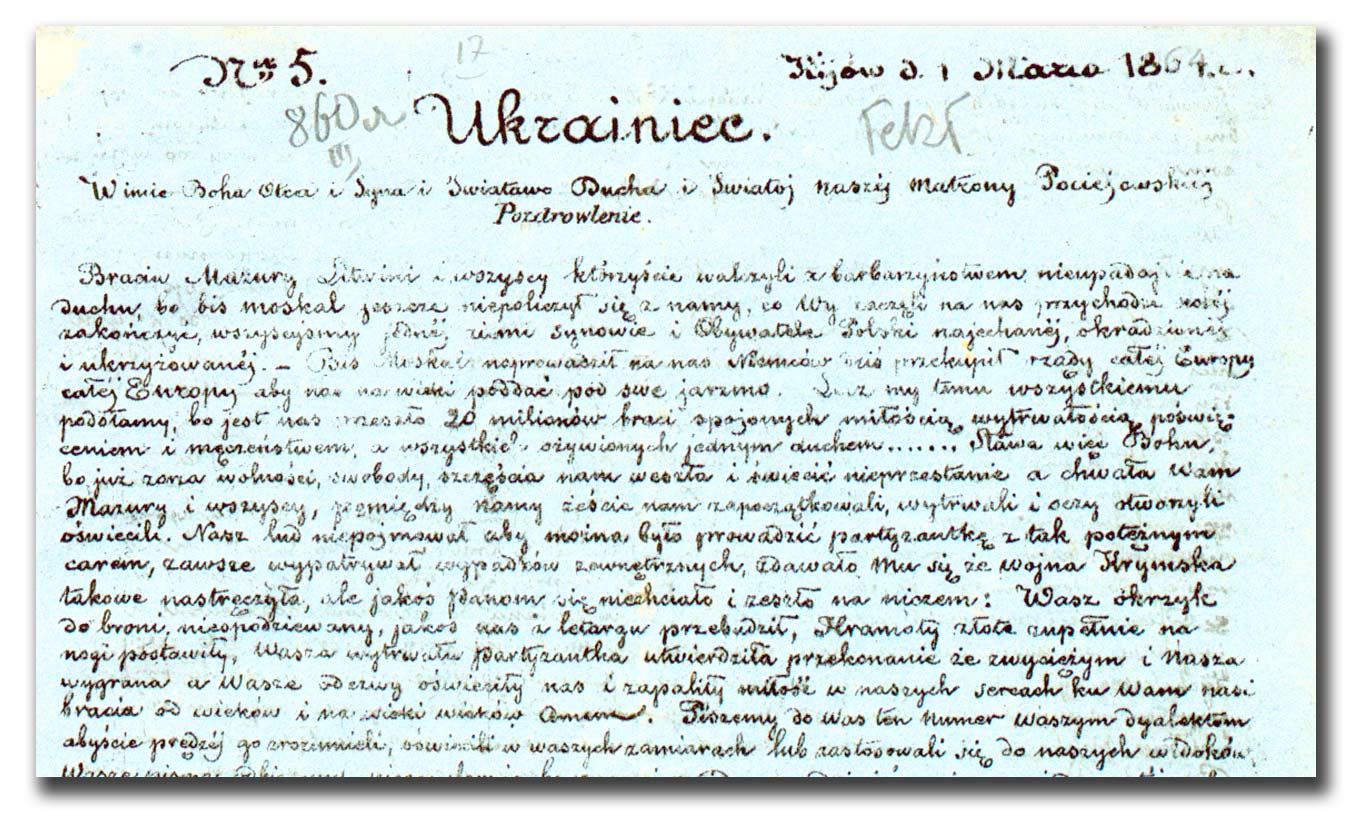 Nr 5.
17
Kijów d. 1 Marca 1864 r.
860
III
Ukrainiec.
W imie Boha Otca i Syna i Swiatawo Ducha i Swiatoj naszéj Matrony Pociejewskiej
Pozdrowlenie.
Bracia Mazury Litwini i wszyscy którzyście walczyli z barbarzyństwem nieupadajcie na
duchu, bo bis moskal jeszcze niepoliczył się z namy, co Wy zaczęli na nas przychodzi koléj
zakończyć, wszyscyśmy jednéj ziemi synowie i Obywatele Polski najechanéj, okradzionéj
i ukrzyżowanéj. – Bis Moskal naprowadził na nas Niemców bis przekupił rządy całéj Europy,
całéj Europy aby nas na wieki poddać pod swe jarzmo. Lecz my temu wszystkiemu
podołamy, bo jest nas przeszło 20 milionów braci spojonych miłością, wytrwałością, poświę-
ceniem i męczeństwem, a wszystkich ożywionych jednym duchem....... Sława więc Bohu,
bo już zorza wolności, swobody, szczęścia nam weszła i świecić nieprzestanie a chwała Wam
Mazury i wszyscy, pomiędzy namy żeście nam zapoczątkowali, wytrwali i oczy otworzyli
oświecili. Nasz lud niepojmował aby można było prowadzić partyzantkę z tak potężnym
carem, zawsze wypatrywał wypadków zewnętrznych, zdawało mu się że wojna Krymska
takowe nastręczyła, ale jakoś Panom się niechciało i zeszło na niczem: Wasz okrzyk
do broni, niespodziewany, jakoś nas z letargu przebudził, Hramoty złote zupełnie na
nogi postawiły, Wasza wytrwała Partyzantka utwierdziła przekonanie że zwyciężym i Nasza
wygrana a Wasze odezwy oświeciły nas i zapaliły miłość w naszych sercach ku Wam nasi
bracia od wieków i na wieki wieków Amen. Piszemy do Was ten Numer waszym dyalektem
abyście prędzéj go zrozumieli, oświecili w waszych zamiarach lub zastosowali się do naszych widoków